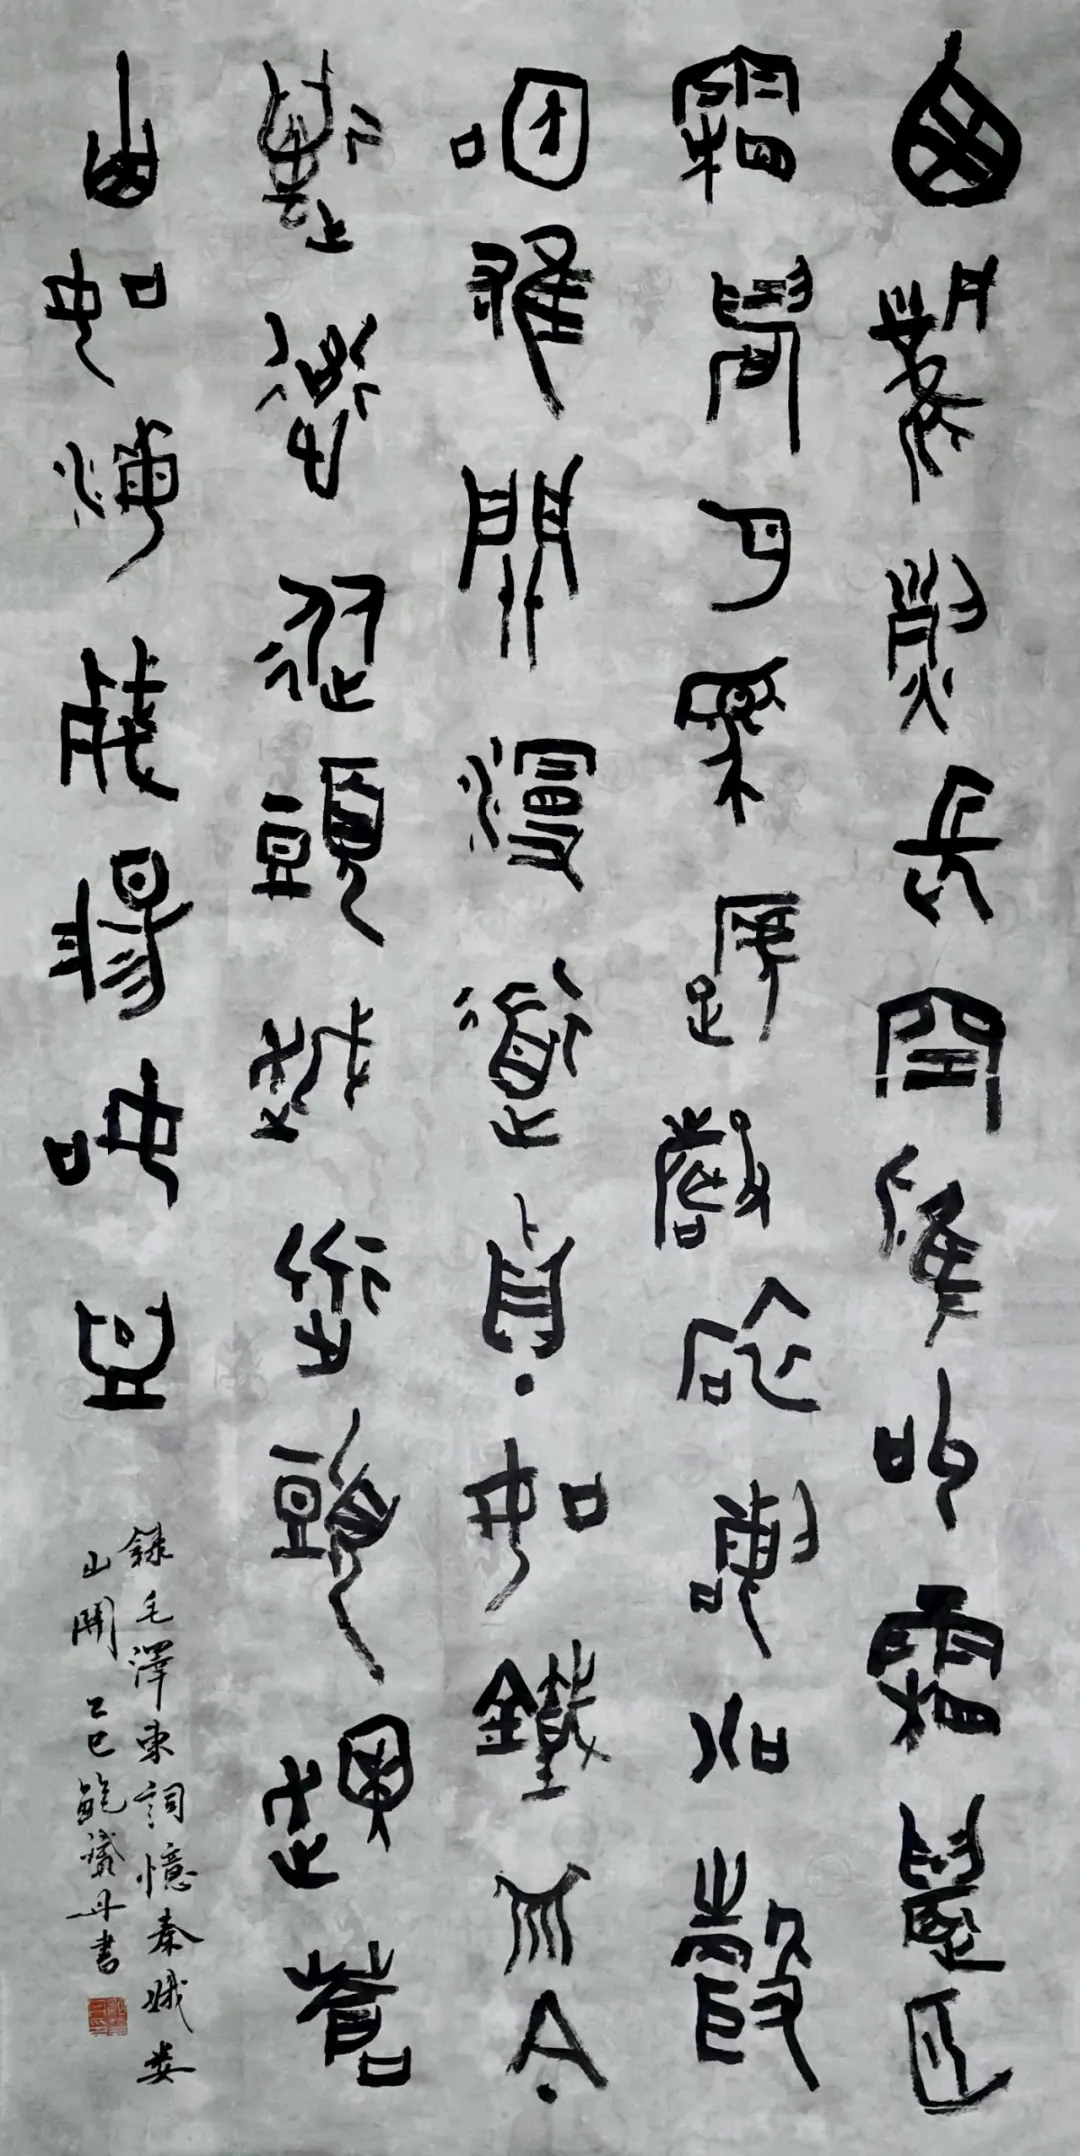 西風烈長空雁叫霜晨月
霜晨月馬蹄聲碎喇叭聲
咽雄關漫道真如鐵而今
邁步從頭越從頭越蒼
山如海殘陽如血
錄毛澤東詞憶秦娥婁
山關 乙巳鮑丹書